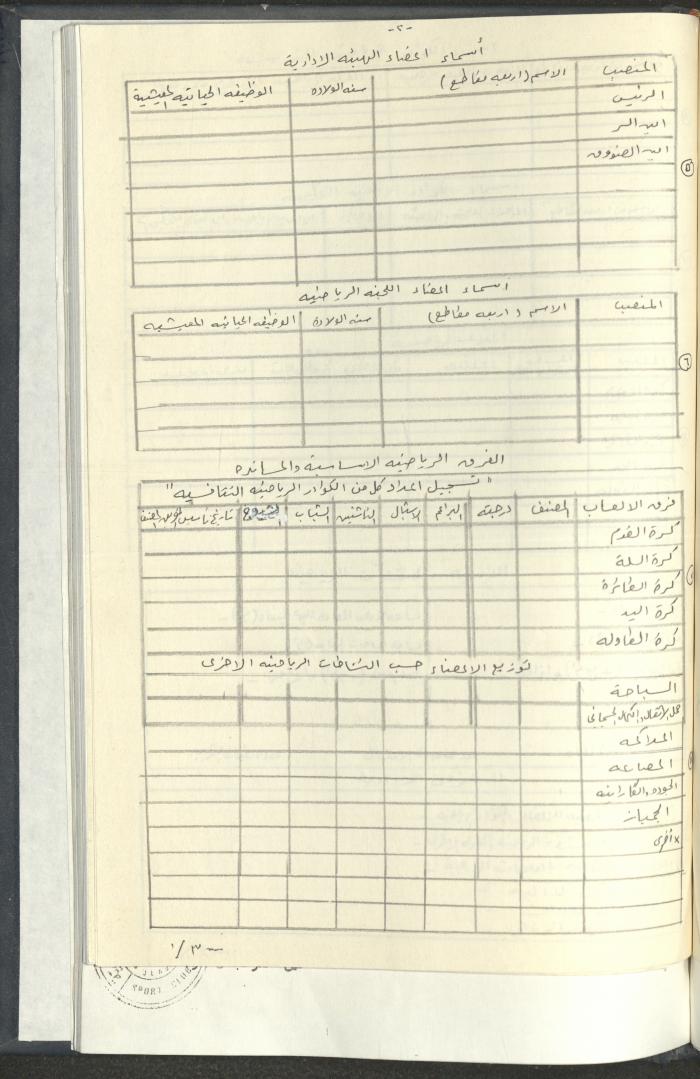 -٢-
أسماء اعضاء الهيئه الادارية
المنصب الاسم (اربعه مقاطع) سنه الولاده الوظيفه الحياتيه المعيشية
الرئيس
امين السر
امين الصندوق
٥
اسماء اعضاء اللجنه الرياضيه
المنصب الاسم (اربعه مقاطع) سنه الولادة الوظيفه الحياتيه المعيشيه
٦
الفرق الرياضيه الاساسية والمسانده
"تسجيل اعداد كل من الكوادر الرياضيه التنافسيه"
فرق الالعاب المصنف درجته البراعم الاشبال الناشئين الشباب الشيوخ تاريخ تأسيس
كرة القدم
كرة السلة
كرة الطائرة
كرة اليد
كرة الطاوله
توزيع الاعضاء حسب النشاطات الرياضيه الاخرى
السباحة
حمل الاثقال والكمال الجسماني
الملاكمه
المصارعه
الجودو والكاراتيه
الجمباز
× أخرى
١/٣٠٠